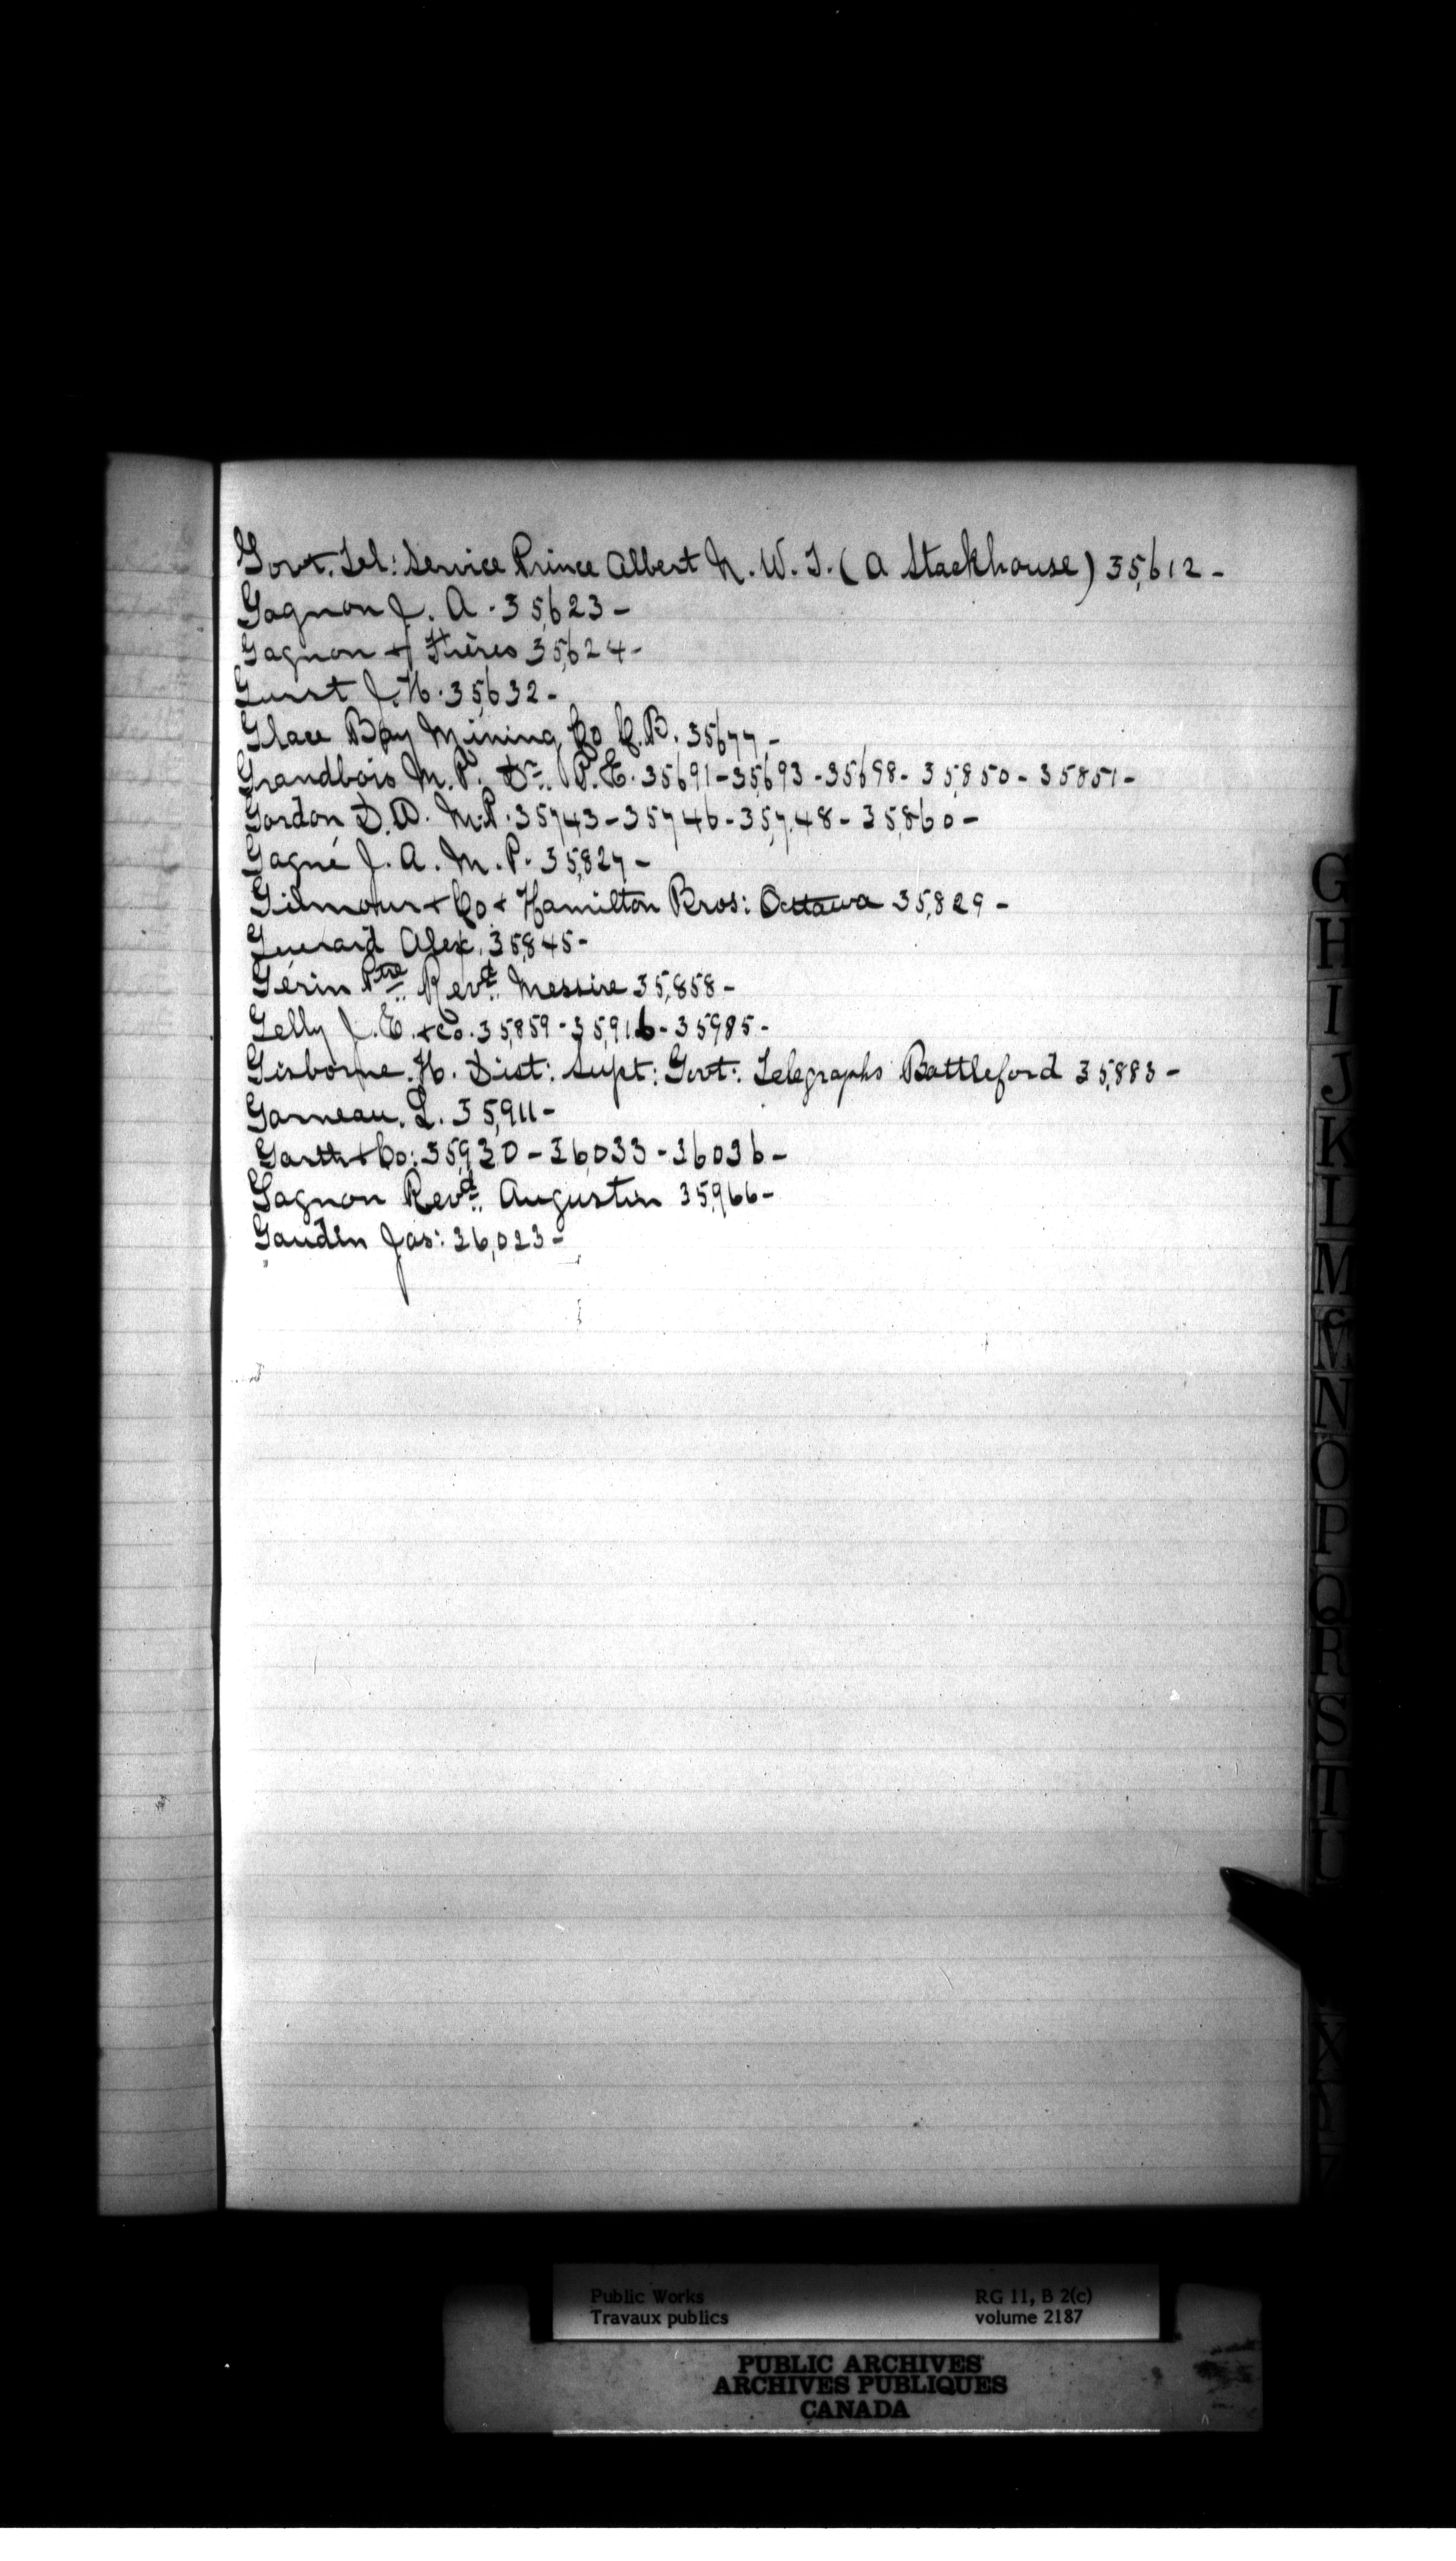 Govt. Tel: Service Prince Albert N. W. T. (A Stackhouse) 35,612 -
Gagnon J. A. 35,623 -
Gagnon & Frères 35,624 -
Guest J. H. 35,632 -
Glace Bay Mining Co C.B. 35,677 -
Grandbois M.P. Dr. P.E. 35,691 - 35,693 - 35,698 - 35,850 - 35851 -
Gordon D.A. M.P. 35743 - 35746 - 35,748 - 35,860 -
Gagné J. A. M. P. 35,827 -
Gilmour & Co & Hamilton Bros: Ottawa 35,829 -
Guerard Alex. 35,845 -
Gérin Ptre Revd. Messire 35,858 -
Gelly J. E. & Co. 35,859 - 35,916 - 35985 -
Gisborne. H. Dist: Supt: Govt: Telegraphs Battleford 35,883 -
Garneau. L. 35,911 -
Garth & Co: 35,930 - 36,033 - 36036 -
Gagnon Revd. Augustin 35,966 -
Gaudin Jas: 36,023 -
G
H
I
J
K
L
M
Mc
N
O
P
Q
R
S
T
U
X
Public Works
Travaux publics
RG 11, B 2(c)
volume 2187
PUBLIC ARCHIVES
ARCHIVES PUBLIQUES
CANADA